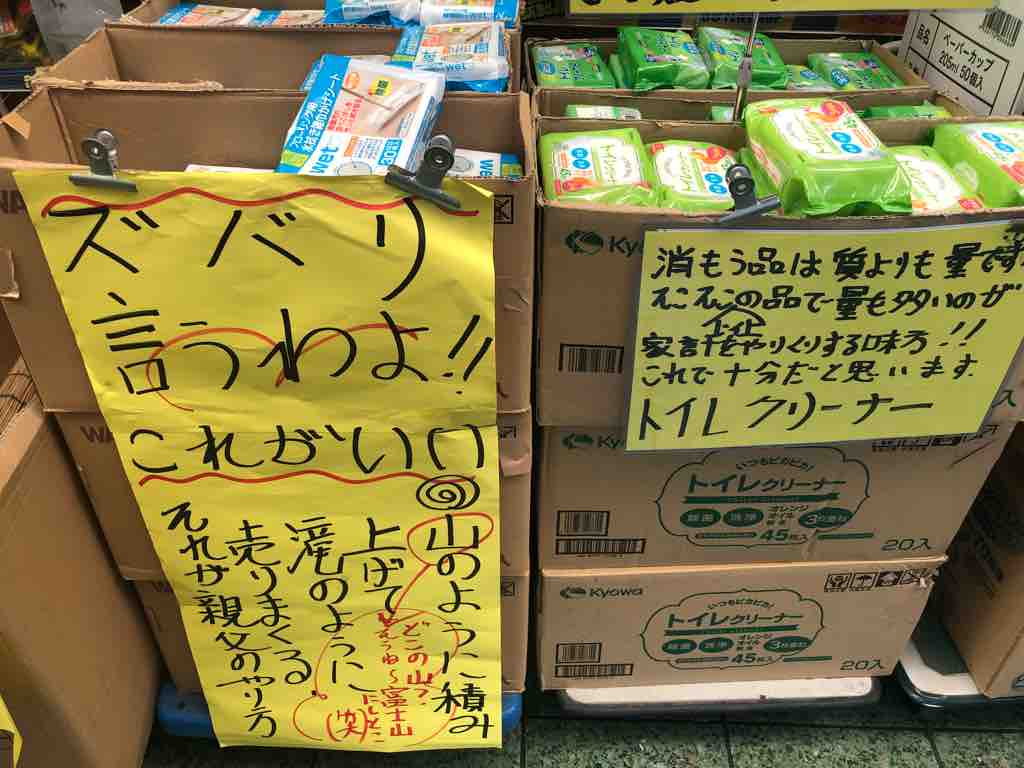 ズバリ
言うわよ!!
これがいい
山のように積み
上げて
滝のように
売りまくる
それが親父のやり方
どこの山?
そうね〜富士山
にしとこ
(笑)
消もう品は質よりも量です
そこそこの品で量も多いのが
家計をやりくりする味方!!
これで十分だと思います
トイレクリーナー
wet
30
wet
トイレ
Kyowa
いつもピカピカ!
トイレクリーナー
除菌 洗浄 オレンジオイル配合 3枚重ね
45枚入
20入
Kyowa
いつもピカピカ!
トイレクリーナー
除菌 洗浄 オレンジオイル配合 3枚重ね
45枚入
20入
品名 ペーパーカップ
205ml 50個入